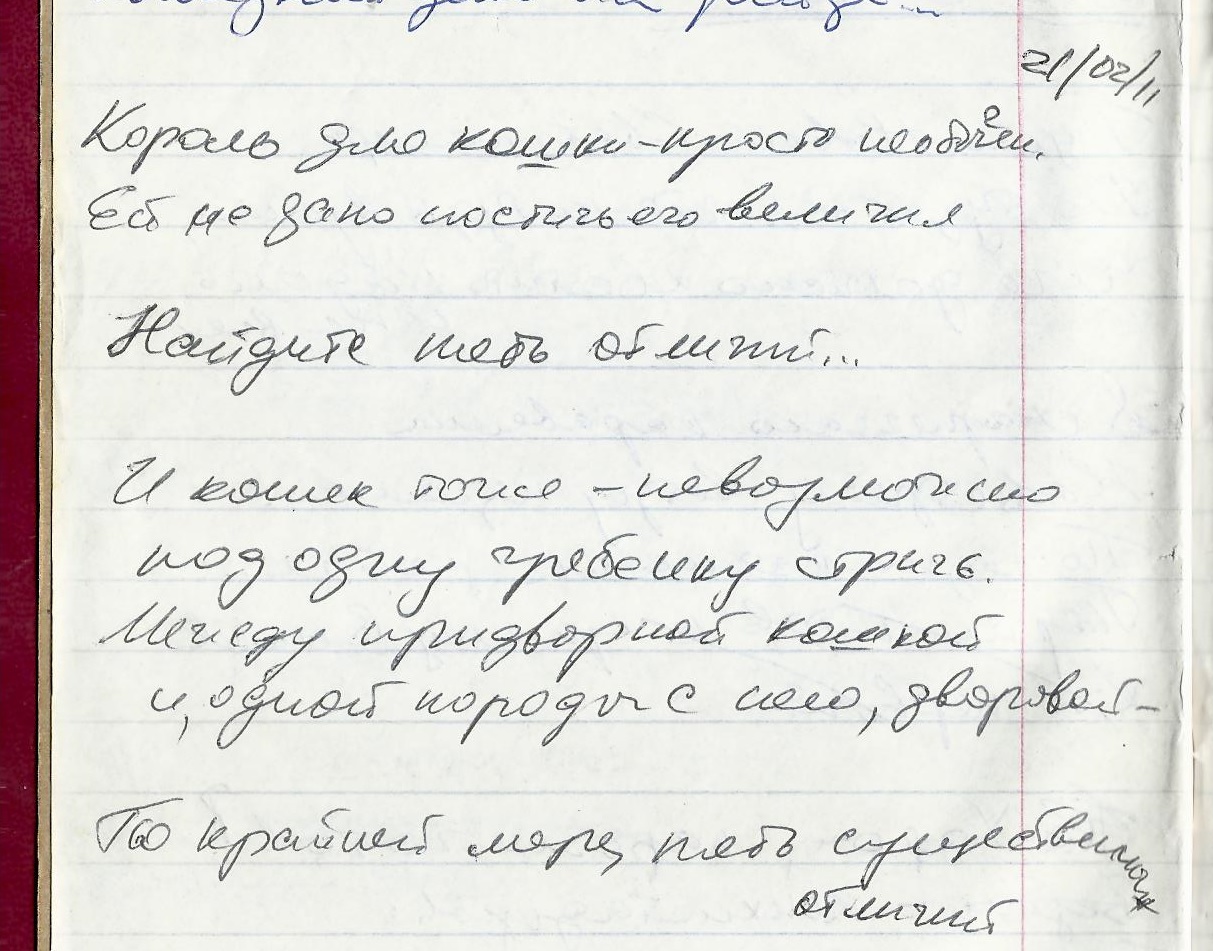 21/02/11
Король для кошки - просто необычен.
Ей не дано постичь его величия
Найдите пять отличий...
И кошек тоже - невозможно
под одну гребенку стричь.
Между придворной кошкой
и, одной породы с нею, дворовой -
По крайней мере, пять существенных
отличий